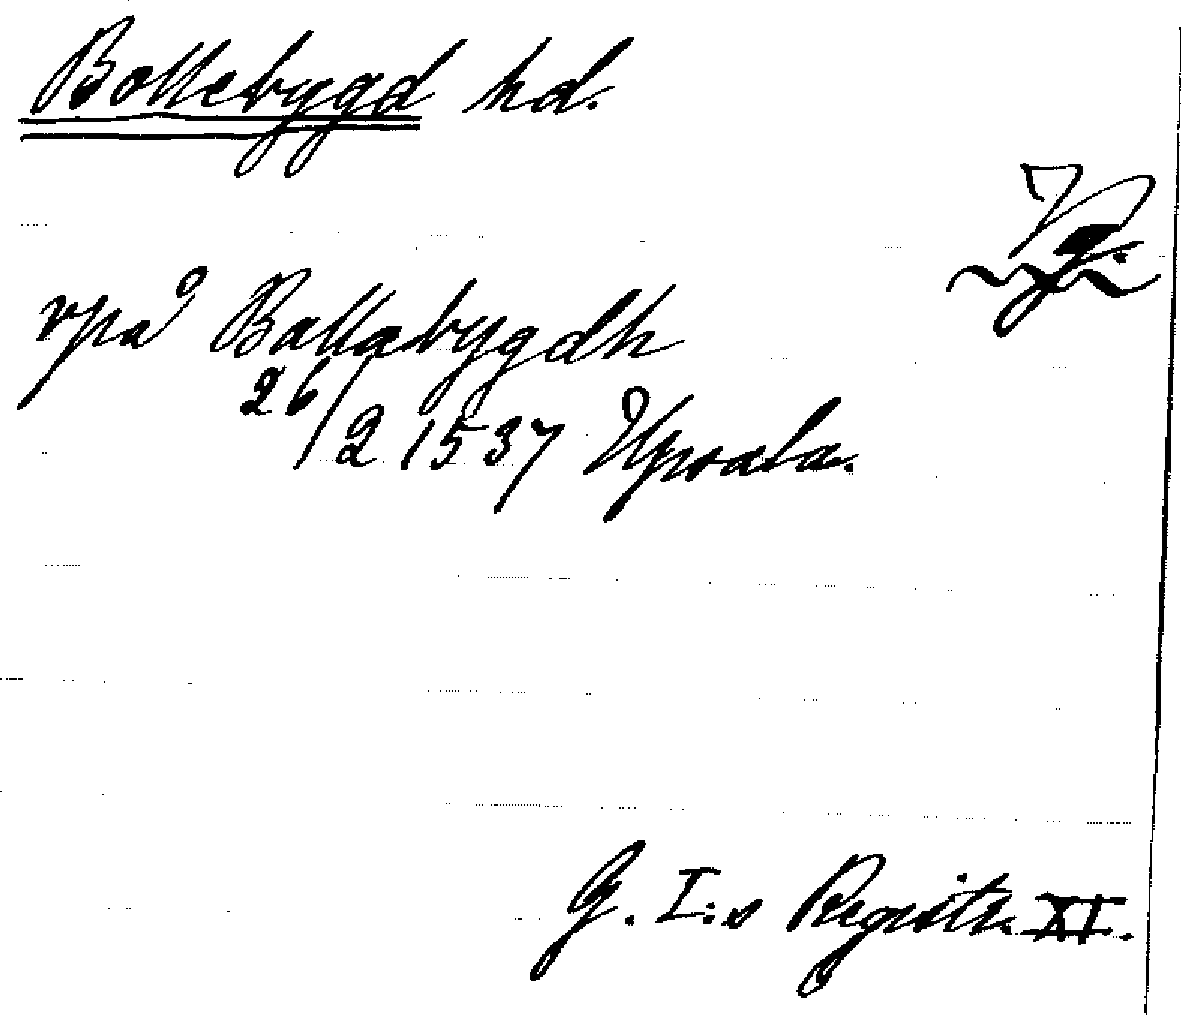 Bollebygd hd.
Vg.
vpå Ballabygdh
26/2 1537 Upsala.
G. I:s Registr. XI.